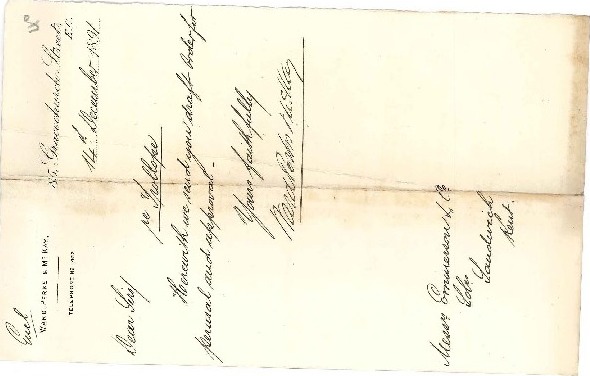 Encl
WARD, PERKS & McKAY,
TELEPHONE No
85, Gracechurch Street,
E.C.
14th December 1891
Dear Sirs
re Trollope
Herewith we send you draft order for
perusal and approval -
Yours faithfully
Ward Perks & McKay
Messrs Emmerson & Co
Solrs
Sandwich
Kent